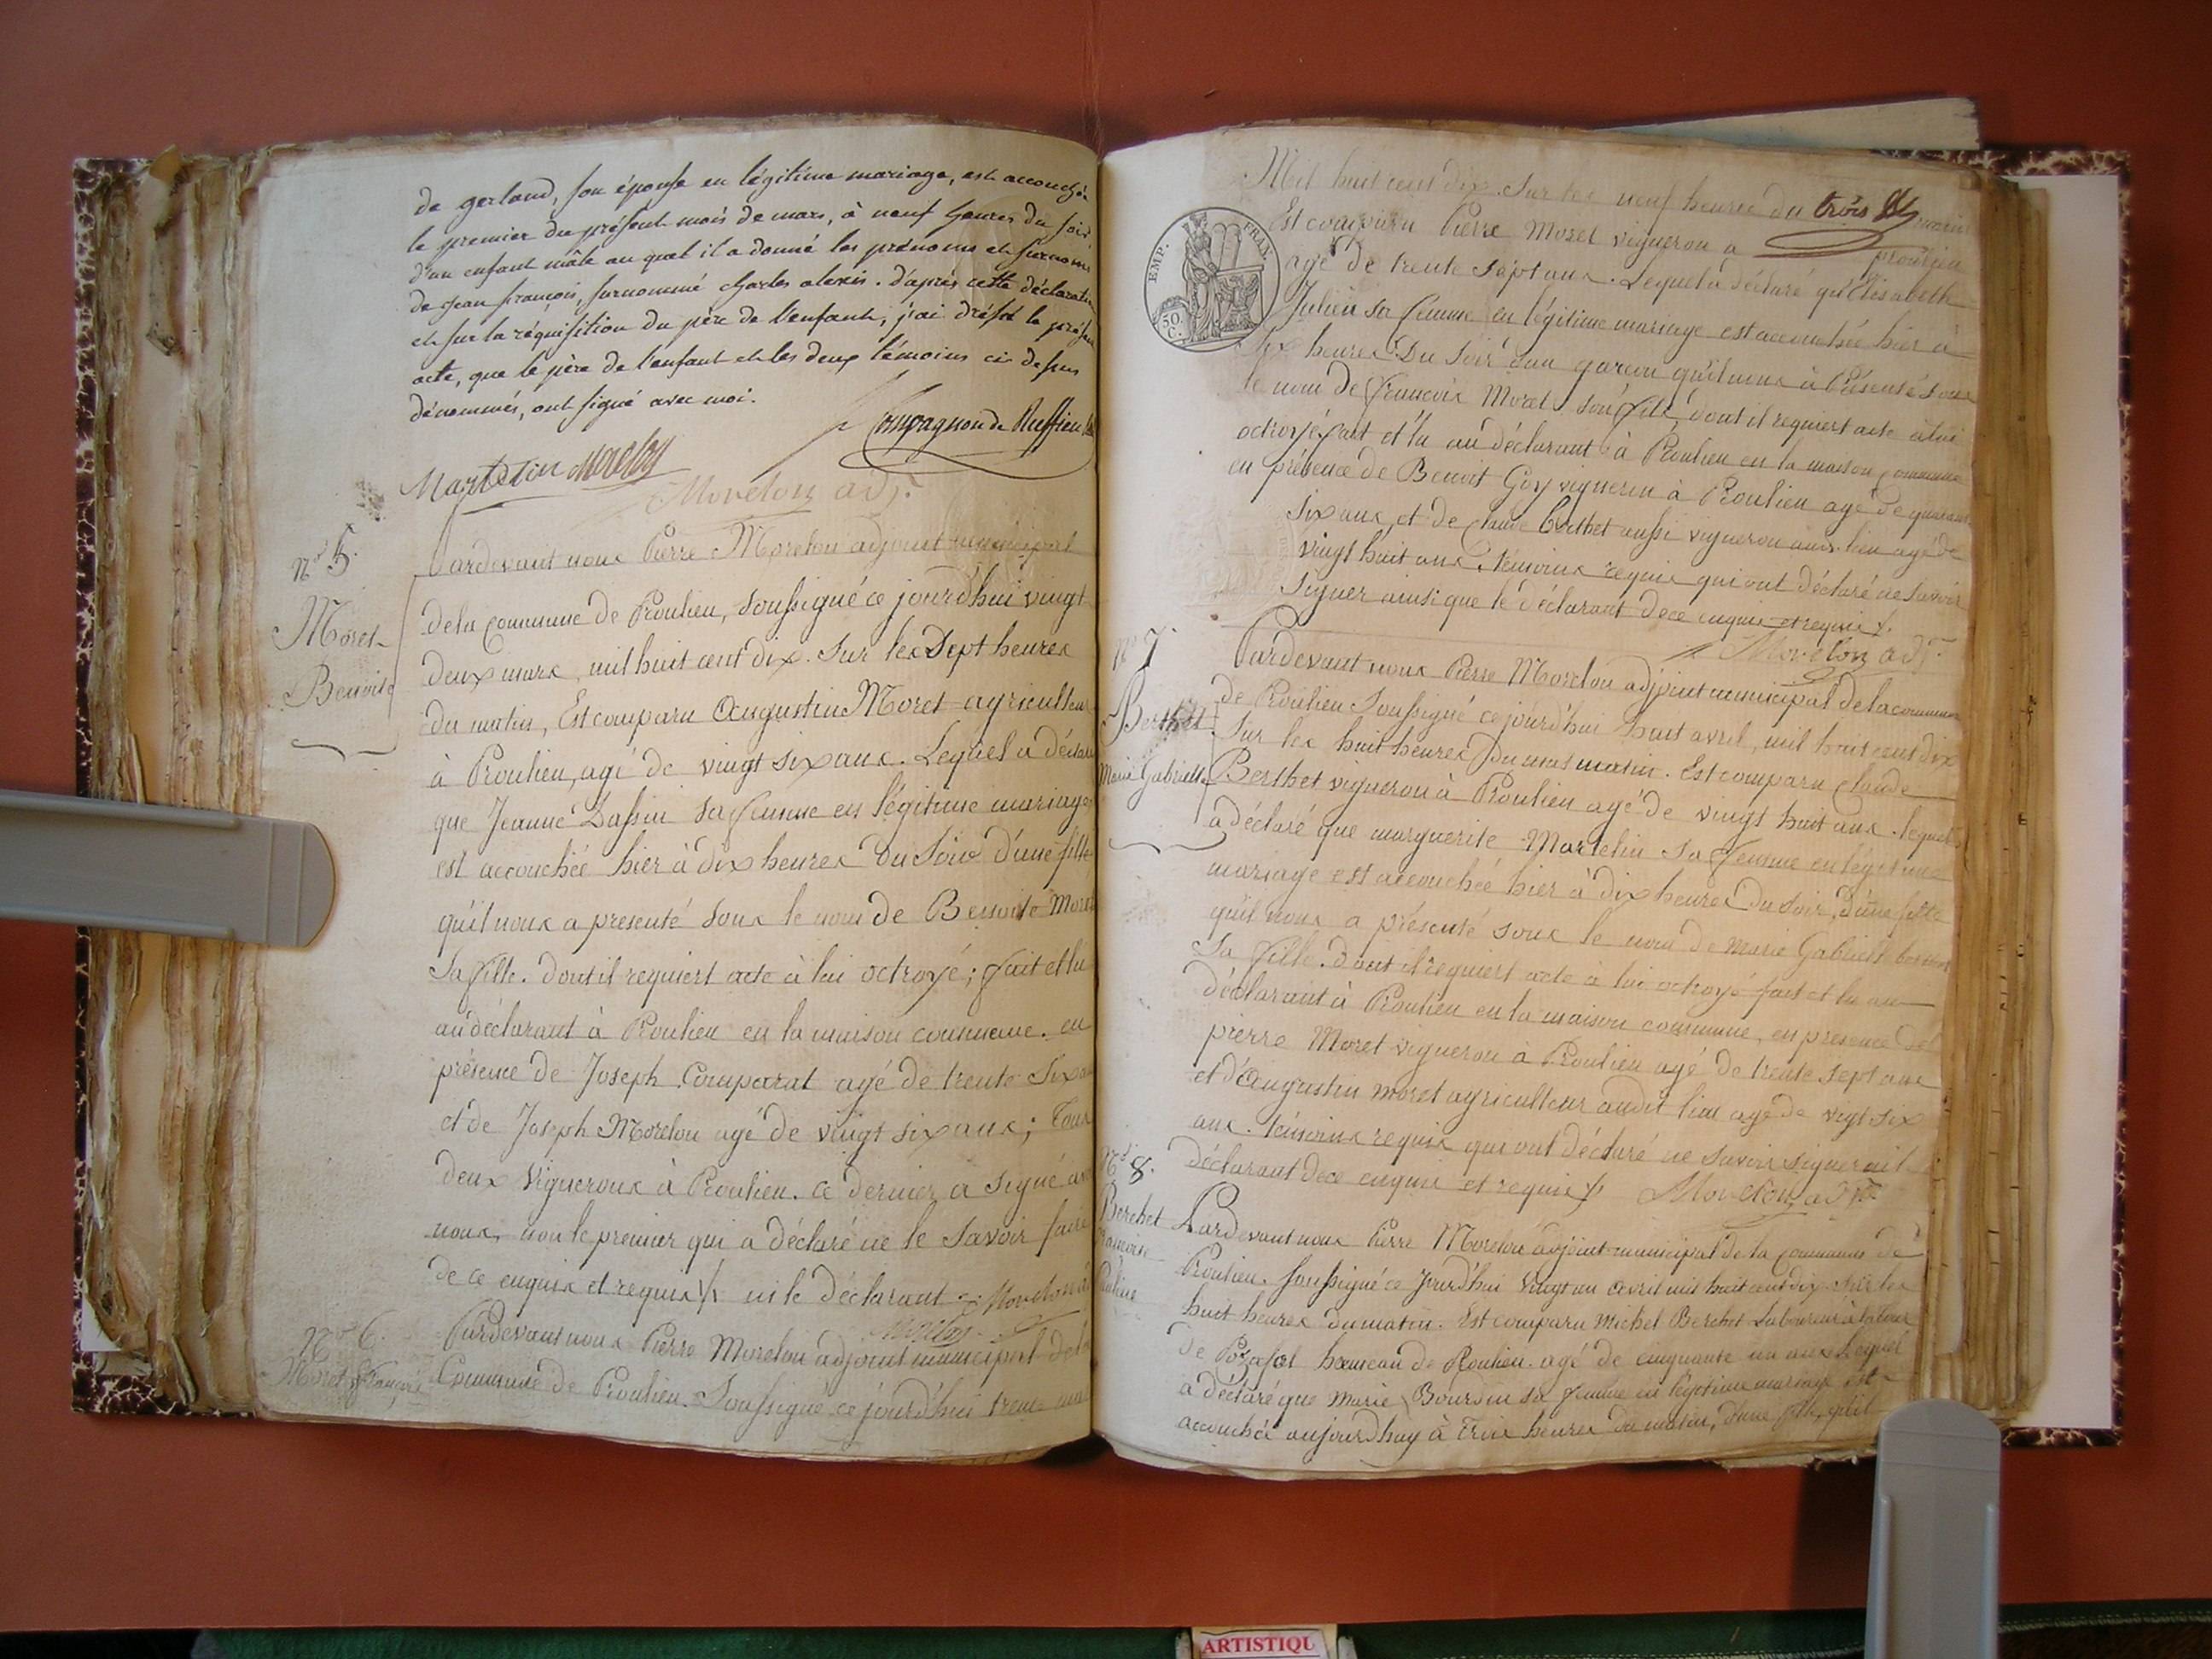 de gerland, son épouse en légitime mariage, est accouchée
le premier du présent mois de mars, à neuf heures du soir
d'un enfant mâle au quel il a donné les prénoms et surnoms
de jean françois, surnommé charles alexis. d'après cette déclaration
et sur la réquisition du père de l'enfant, j'ai dréssé le présent
acte, que le père de l'enfant et les deux témoins ci-dessus
dénommés, ont signé avec moi.
Compagnon de Ruffieu
Martelin Morelon
Morelon adjt.
No 5.
Moret
Benoite
Pardevant nous Pierre Morelon adjoint municipal
de la Commune de Proulieu, soussigné ce jourd'hui vingt
deux mars, mil huit cent dix. Sur les Sept heures
du matin, Est comparu Augustin Moret agriculteur
à Proulieu, agé de vingt six ans. Lequel a déclaré
que Jeanne Dassin sa femme en légitime mariage
est accouchée hier à dix heures du Soir d'une fille
qu'il nous a presenté sous le nom de Benoite Moret
sa fille. dont il requiert acte à lui octroyé; fait et lu
au déclarant à Proulieu en la maison commune. en
présence de Joseph Comparat agé de trente Six ans
et de Joseph Morelon agé de vingt six ans; Tous
deux Vignerons à Proulieu. ce dernier a signé avec
nous, non le premier qui a déclaré ne le Savoir faire
de ce enquis et requis /. ni le déclarant Morelon
Morelon
No 6.
Moret François
Pardevant nous Pierre Morelon adjoint municipal de la
Commune de Proulieu. Soussigné ce jourd'hui trente un
Mil huit cent dix. Sur les neuf heures du trois
Est comparu Pierre Moret vigneron a Proulieu
agé de trente Sept ans. Lequel a déclaré qu'Elisabeth
Julien sa femme en légitime mariage est accouchée hier à
six heures Du Soir d'un garcon qu'il nous à Présenté sous
le nom de françois Moret son fils dont il requiert acte à lui
octroyé fait et lu au déclarant à Proulieu en la maison commune
en présence de Benoit Goy vigneron à Proulieu agé de quarante
six ans, et de Claude Berthet aussi vigneron audit lieu agé de
vingt huit ans, témoins requis qui ont déclaré ne savoir
signer ainsi que le déclarant de ce enquis et requis /.
Morelon adjt.
No 7.
Berthet
Marie Gabrielle
Pardevant nous Pierre Morelon adjoint municipal de la commune
de Proulieu Soussigné ce jourd'hui huit avril, mil huit cent dix
Sur les huit heures Du matin. Est comparu Claude
Berthet vigneron à Proulieu agé de vingt huit ans. lequel
a déclaré que marguerite Martelin sa femme en légitime
mariage est accouchée hier à dix heures Du Soir, d'une fille
qu'il nous a présenté sous le nom de Marie Gabrielle
Sa fille. dont il requiert acte à lui octroyé fait et lu au
déclarant à Proulieu en la maison commune, en presence de
pierre Moret vigneron à Proulieu agé de trente Sept ans
et d'Augustin moret agriculteur audit lieu agé de vingt six
ans. témoins requis qui ont déclaré ne savoir signer ni le
déclarant de ce enquis et requis /. Morelon adjt.
No 8.
Berchet
Francoise
Pauline
Pardevant nous Pierre Morelon adjoint municipal de la commune de
Proulieu. Soussigné ce Jourd'hui Vingt un avril mil huit cent dix. Sur les
huit heures du matin. Est comparu Michel Berchet Laboureur à la tour
de Pozafol hameau de Proulieu. agé de cinquante un ans Lequel
a déclaré que Marie Bourdin sa femme en légitime mariage est
accouchée aujourd'huy à Trois heures du matin, d'une fille, qu'il
EMP.
FRAN.
50 C.
ARTISTIQU